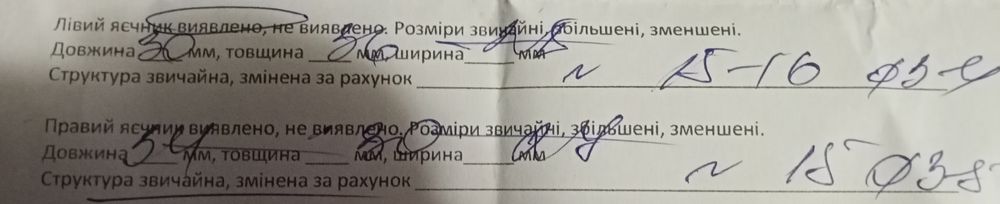 Лівий яєчник виявлено, не виявлено. Розміри звичайні, збільшені, зменшені.
Довжина 30 мм, товщина мм, ширина мм
Структура звичайна, змінена за рахунок ~ 15-16 ф3-4
Правий яєчник виявлено, не виявлено. Розміри звичайні, збільшені, зменшені.
Довжина 34 мм, товщина мм, ширина мм
Структура звичайна, змінена за рахунок ~ 15